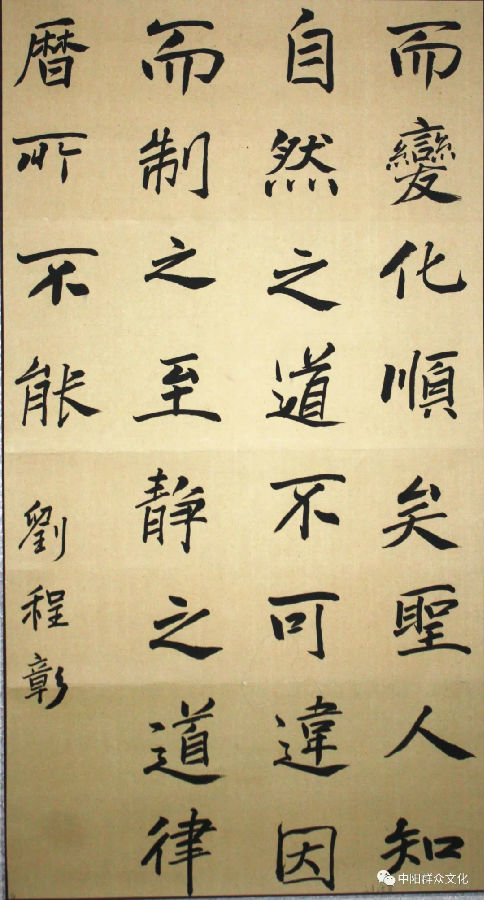 而變化順矣聖人知
自然之道不可違因
而制之至靜之道律
曆所不能
劉程彰
中阳群众文化